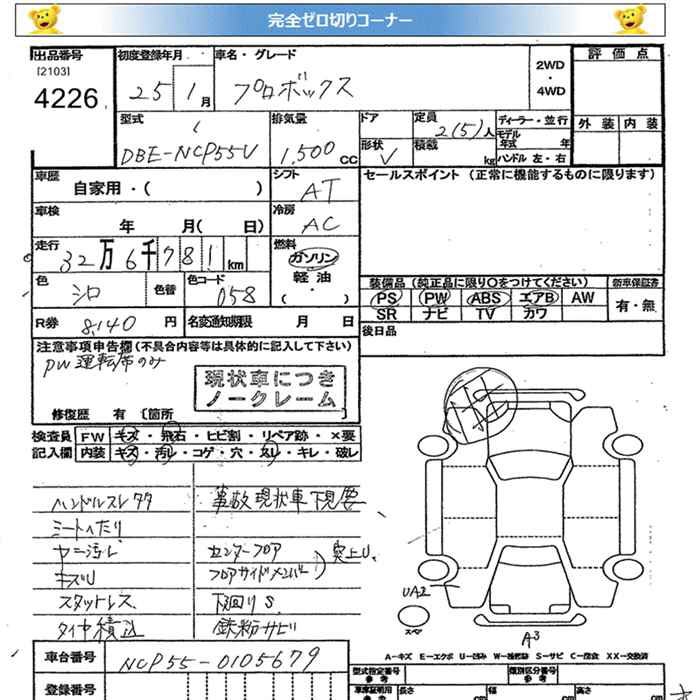 完全ゼロ切りコーナー
出品番号
[2103]
4226
初度登録年月
25 1月
車名・グレード
プロボックス
2WD
・
4WD
評価点
型式
DBE-NCP55V
排気量
1,500 CC
ドア
形状
V
定員
2(5)人
積載
kg
ディーラー・並行
モデル
年式 年
ハンドル 左・右
外装 内装
車歴
自家用・( )
シフト
AT
セールスポイント (正常に機能するものに限ります)
車検
年 月( 日)
冷房
AC
走行
32万6千781km
燃料
ガソリン
軽油
・
( )
色
シロ
色替
色コード
058
装備品(純正品に限り○をつけてください)
新車保証書
PS PW ABS エアB AW
SR ナビ TV カワ
有・無
R券 8,140 円
名変通知期限 月 日
後日品
注意事項申告欄(不具合内容等は具体的に記入して下さい)
PW運転席のみ
現状車につき
ノークレーム
修復歴 有 [箇所 ]
検査員
記入欄
FW キズ・飛石・ヒビ割・リペア跡・×要
内装 キズ・汚レ・コゲ・穴・スレ・キレ・破レ
ハンドルスレ
事故現状車下見要
シートヘたり
ヤニ汚レ
センターフロア
フロアサイドメンバー
突上U.
キズU
スタットレス.
下回りS.
タイヤ積込
鉄粉サビ
UA2
スペア
A3
A-キズ E-エクボ U-凹み W-補修跡 S-サビ C-腐食 XX-交換済
車台番号
NCP55-0105679
登録番号
型式指定番号
参考
類別区分番号
参考
車庫証明用
参考
長さ cm
幅 cm
高さ cm